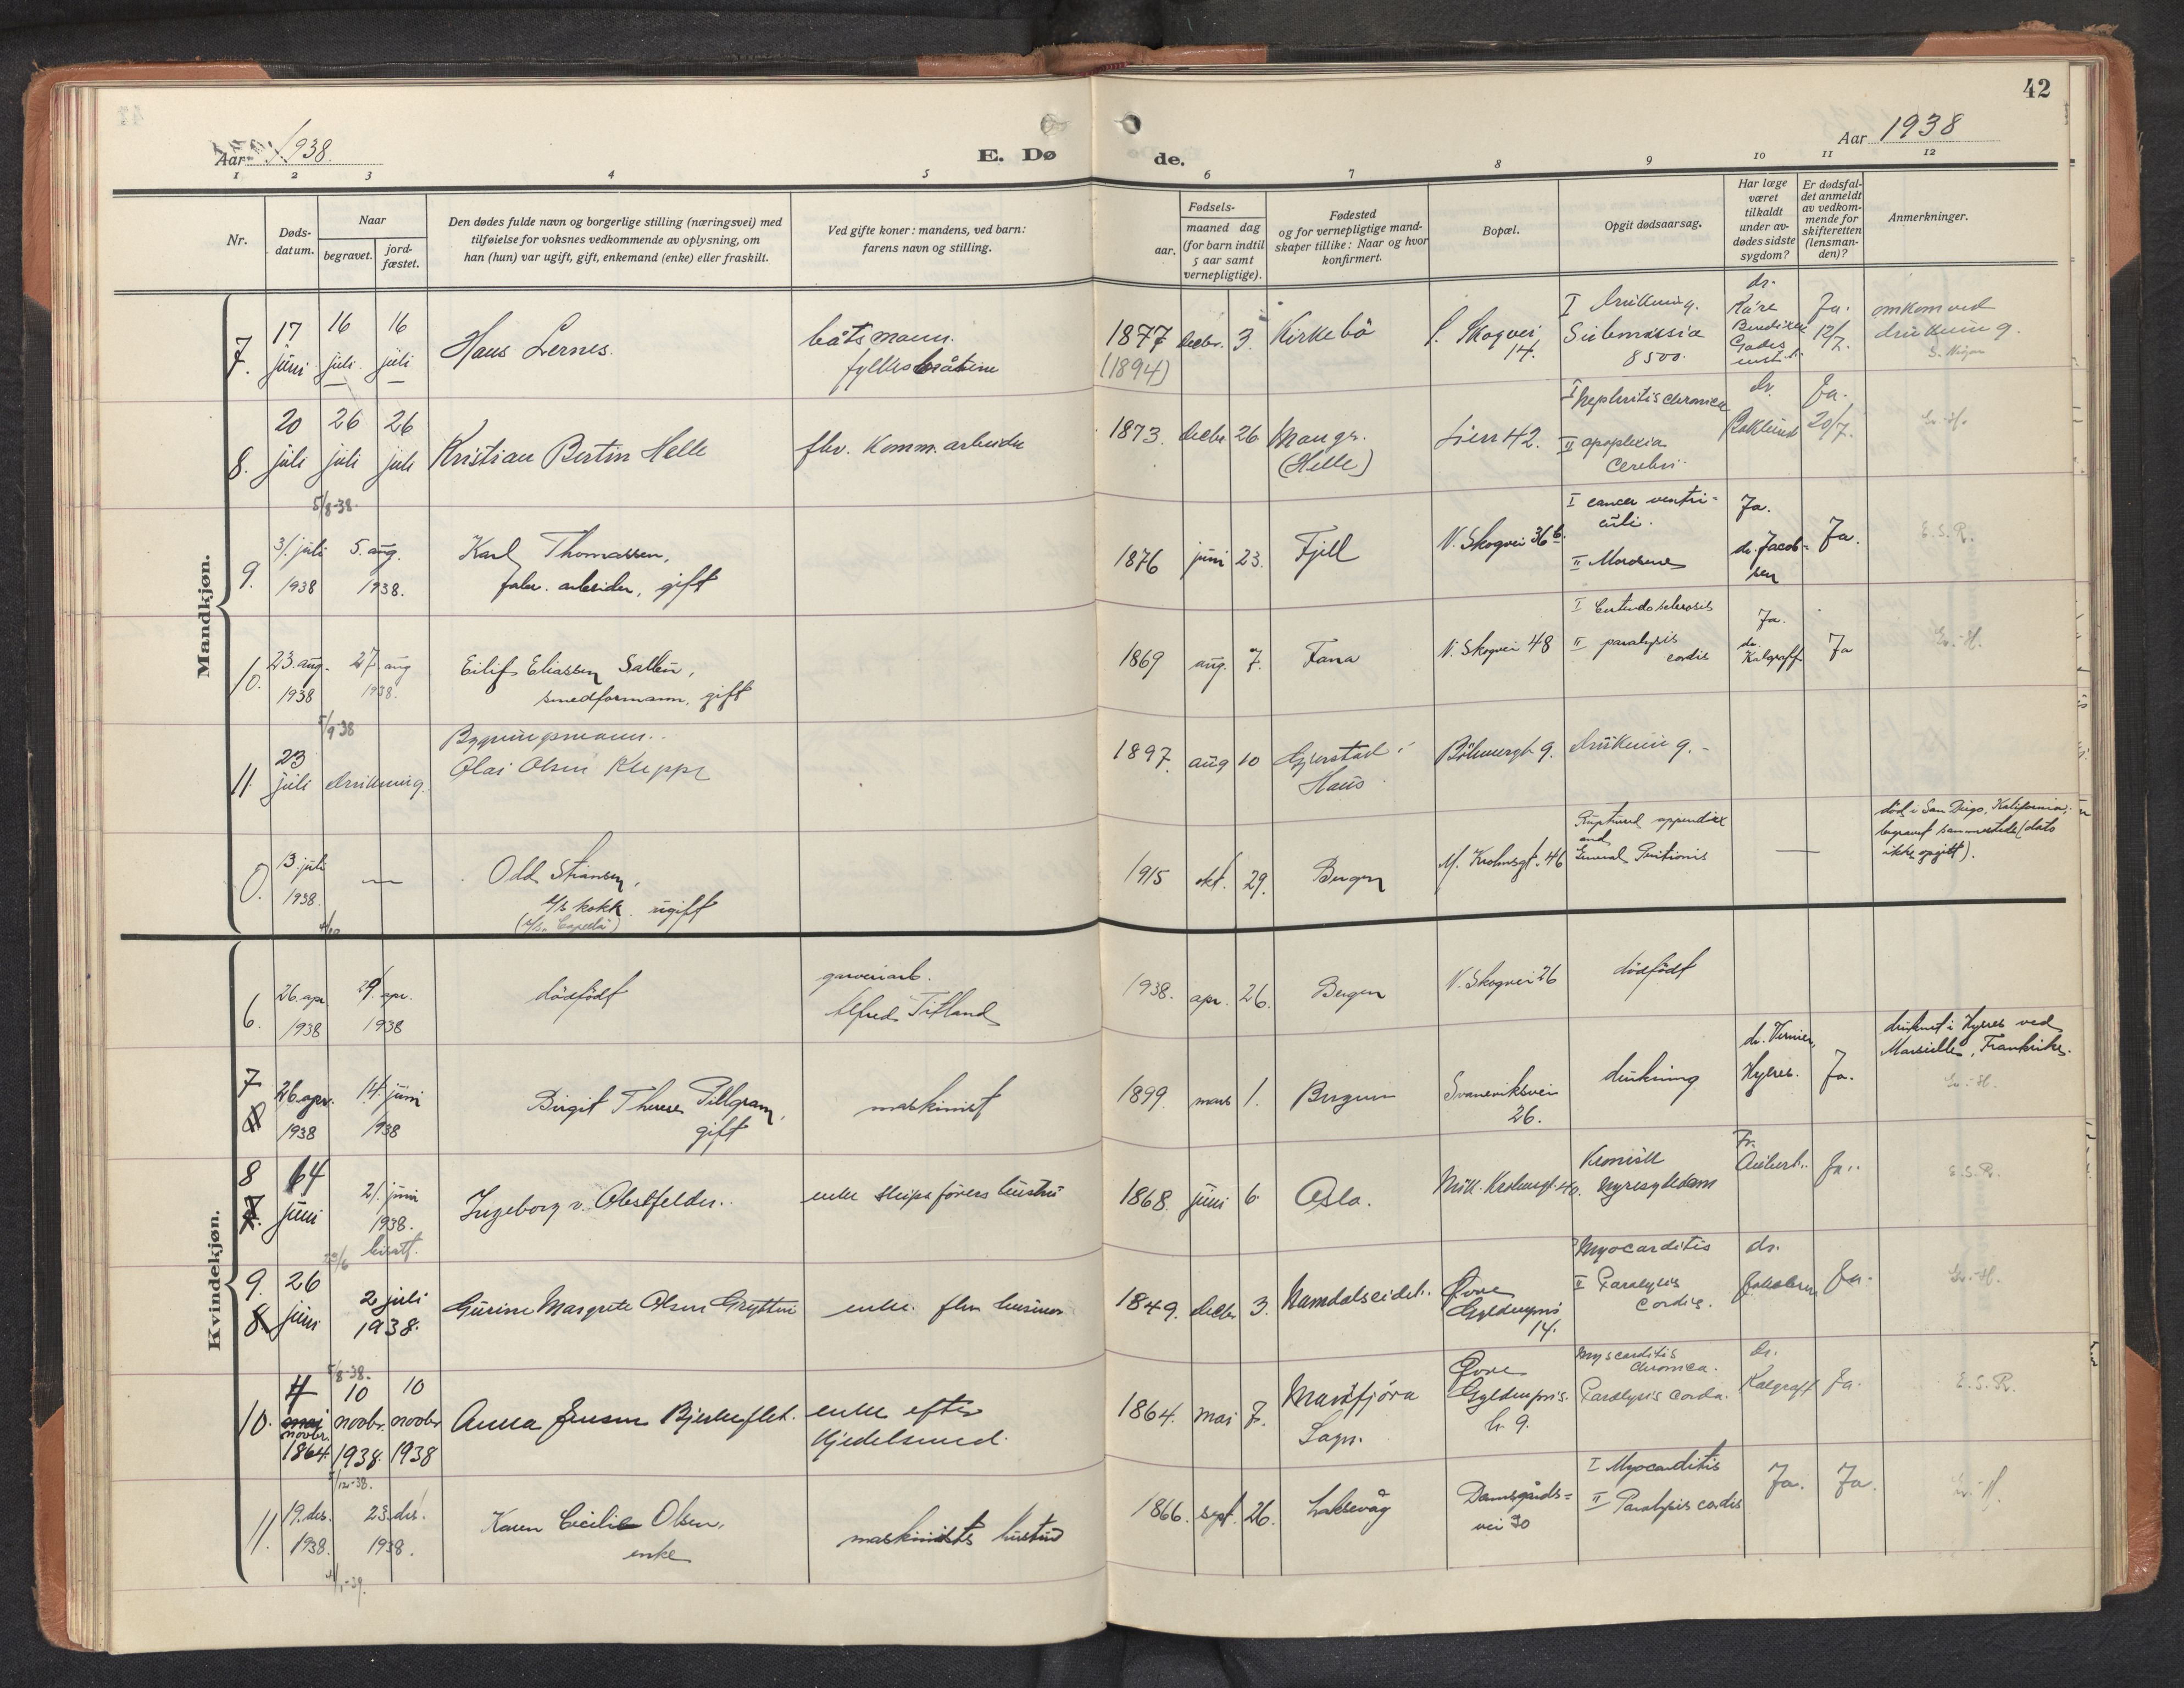 42
Aar 1938.
E. Dø
de.
Aar 1938
1 2 3 4 5 6 7 8 9 10 11 12
Nr.
Døds-
datum.
Naar
begravet.
jord-
fæstet.
Den dødes fulde navn og borgerlige stilling (næringsvei) med
tilføielse for voksnes vedkommende av oplysning, om
han (hun) var ugift, gift, enkemand (enke) eller fraskilt.
Ved gifte koner: mandens, ved barn:
farens navn og stilling.
Fødsels-
aar.
maaned dag
(for barn indtil
5 aar samt
vernepligtige).
Fødested
og for vernepligtige mand-
skaper tillike: Naar og hvor
konfirmert.
Bopæl.
Opgit dødsaarsag.
Har læge
været
tilkaldt
under av-
dødes sidste
sygdom?
Er dødsfal-
det anmeldt
av vedkom-
mende for
skifteretten
(lensman-
den)?
Anmerkninger.
Mandkjøn.
7.
17
juni
16
juli
16
juli
Hans Lernes.
båtsmann.
fylkesbåtene
1877
(1894)
decbr. 3.
Kirkebö
S. Skogvei
14.
I drukning.
8500.
dr.
Kåre
Gades
inst.
Ja.
12/7.
omkom ved
drukning.
8.
20
juli
26
juli
26
juli
Kristian Bertin Helle
fhv. komm. arbeider
1873. decbr 26
Manger.
(Helle)
Lien 42.
I Nephritis chronica
II apoplexia
cerebri.
dr.
Ja.
20/7.
5/8-38.
9.
31. juli
1938
5. aug.
1938.
Karl Thomassen,
fabr. arbeider, gift
1876 juni 23.
Fjell
N. Skogvei 36 b.
I cancer ventri-
culi.
II
Ja.
dr. Jacob-
sen
Ja.
E.S.R.
10.
23. aug.
1938
27. aug
1938.
Eilif Eliassen Sallen,
smedformann, gift
1869 aug. 7.
Fana
N. Skogvei 48
I
II paralysis
cordis
Ja.
dr.
Kalgraff
Ja
5/9-38
11.
23
juli
drukning.
Bygningsmann.
Olai Olsen Kleppe
1897. aug 10
Gjerstad i
Haus
Böhmergt 9.
drukning.
0.
13. juli
1938.
—
Odd Stiansen,
kokk. ugift
1915 okt. 29.
Bergen
M. Krohnsgt. 46
Ruptured appendix
and
General Peritionis
—
död i San Diego, Kalifornia;
begravet sammesteds (dato
ikke opgitt).
Kvindekjøn.
6.
26. apr
1938
29. apr.
1938
dödfödt
garveriarb.
Alfred Titland
1938. apr. 26.
Bergen
N. Skogvei 26
dödfödt
7
8
26. apr.
1938
14. juni
1938
Birgit Therese Pillgram,
gift
maskinist
1899. mars 1.
Bergen
Svaneviksvei
26.
drukning
dr. Vernier,
Hyeres.
Ja.
druknet i Hyeres ved
Marseille, Frankrike.
8
7.
14
juni
21. juni
1938.
Ingeborg v. Obstfelder.
enke skipsförers hustru
1868. juni 6
Oslo.
Mikk. Krohnsgt. 40.
Kronisk
nyresykdom
Ja.
E.S.R.
23/6
9.
8
26
juni
2 juli
1938.
Gurine Margrete Olsen Gryttin
enke. fhv husmor
1849. decbr 3.
Namdalseidet.
Övre
Gyldenpris
14.
Myocarditis
II Paralysis
Cordis.
dr.
Jakobsen
Ja.
5/8-38.
10.
4
mai
novbr.
1864
10
novbr.
1938
10
novbr
1938
Anna Jensen Bjerkeflet.
enke efter
kjedelsmed.
1864. mai 7.
Marifjöra
Sogn.
Övre
Gyldenpris.
9.
Myocarditis
chronica.
Paralysis cordis.
dr.
Kalgraff
Ja.
E.S.R.
5/12-38.
11.
19. des.
1938.
23. des.
1938.
Karen Cecilie Olsen,
enke
maskinists hustru
1866. sept. 26.
Laksevåg
Damsgårds-
vei 30
I Myocarditis
II Paralysis cordis
Ja.
Ja.
4/1-39.